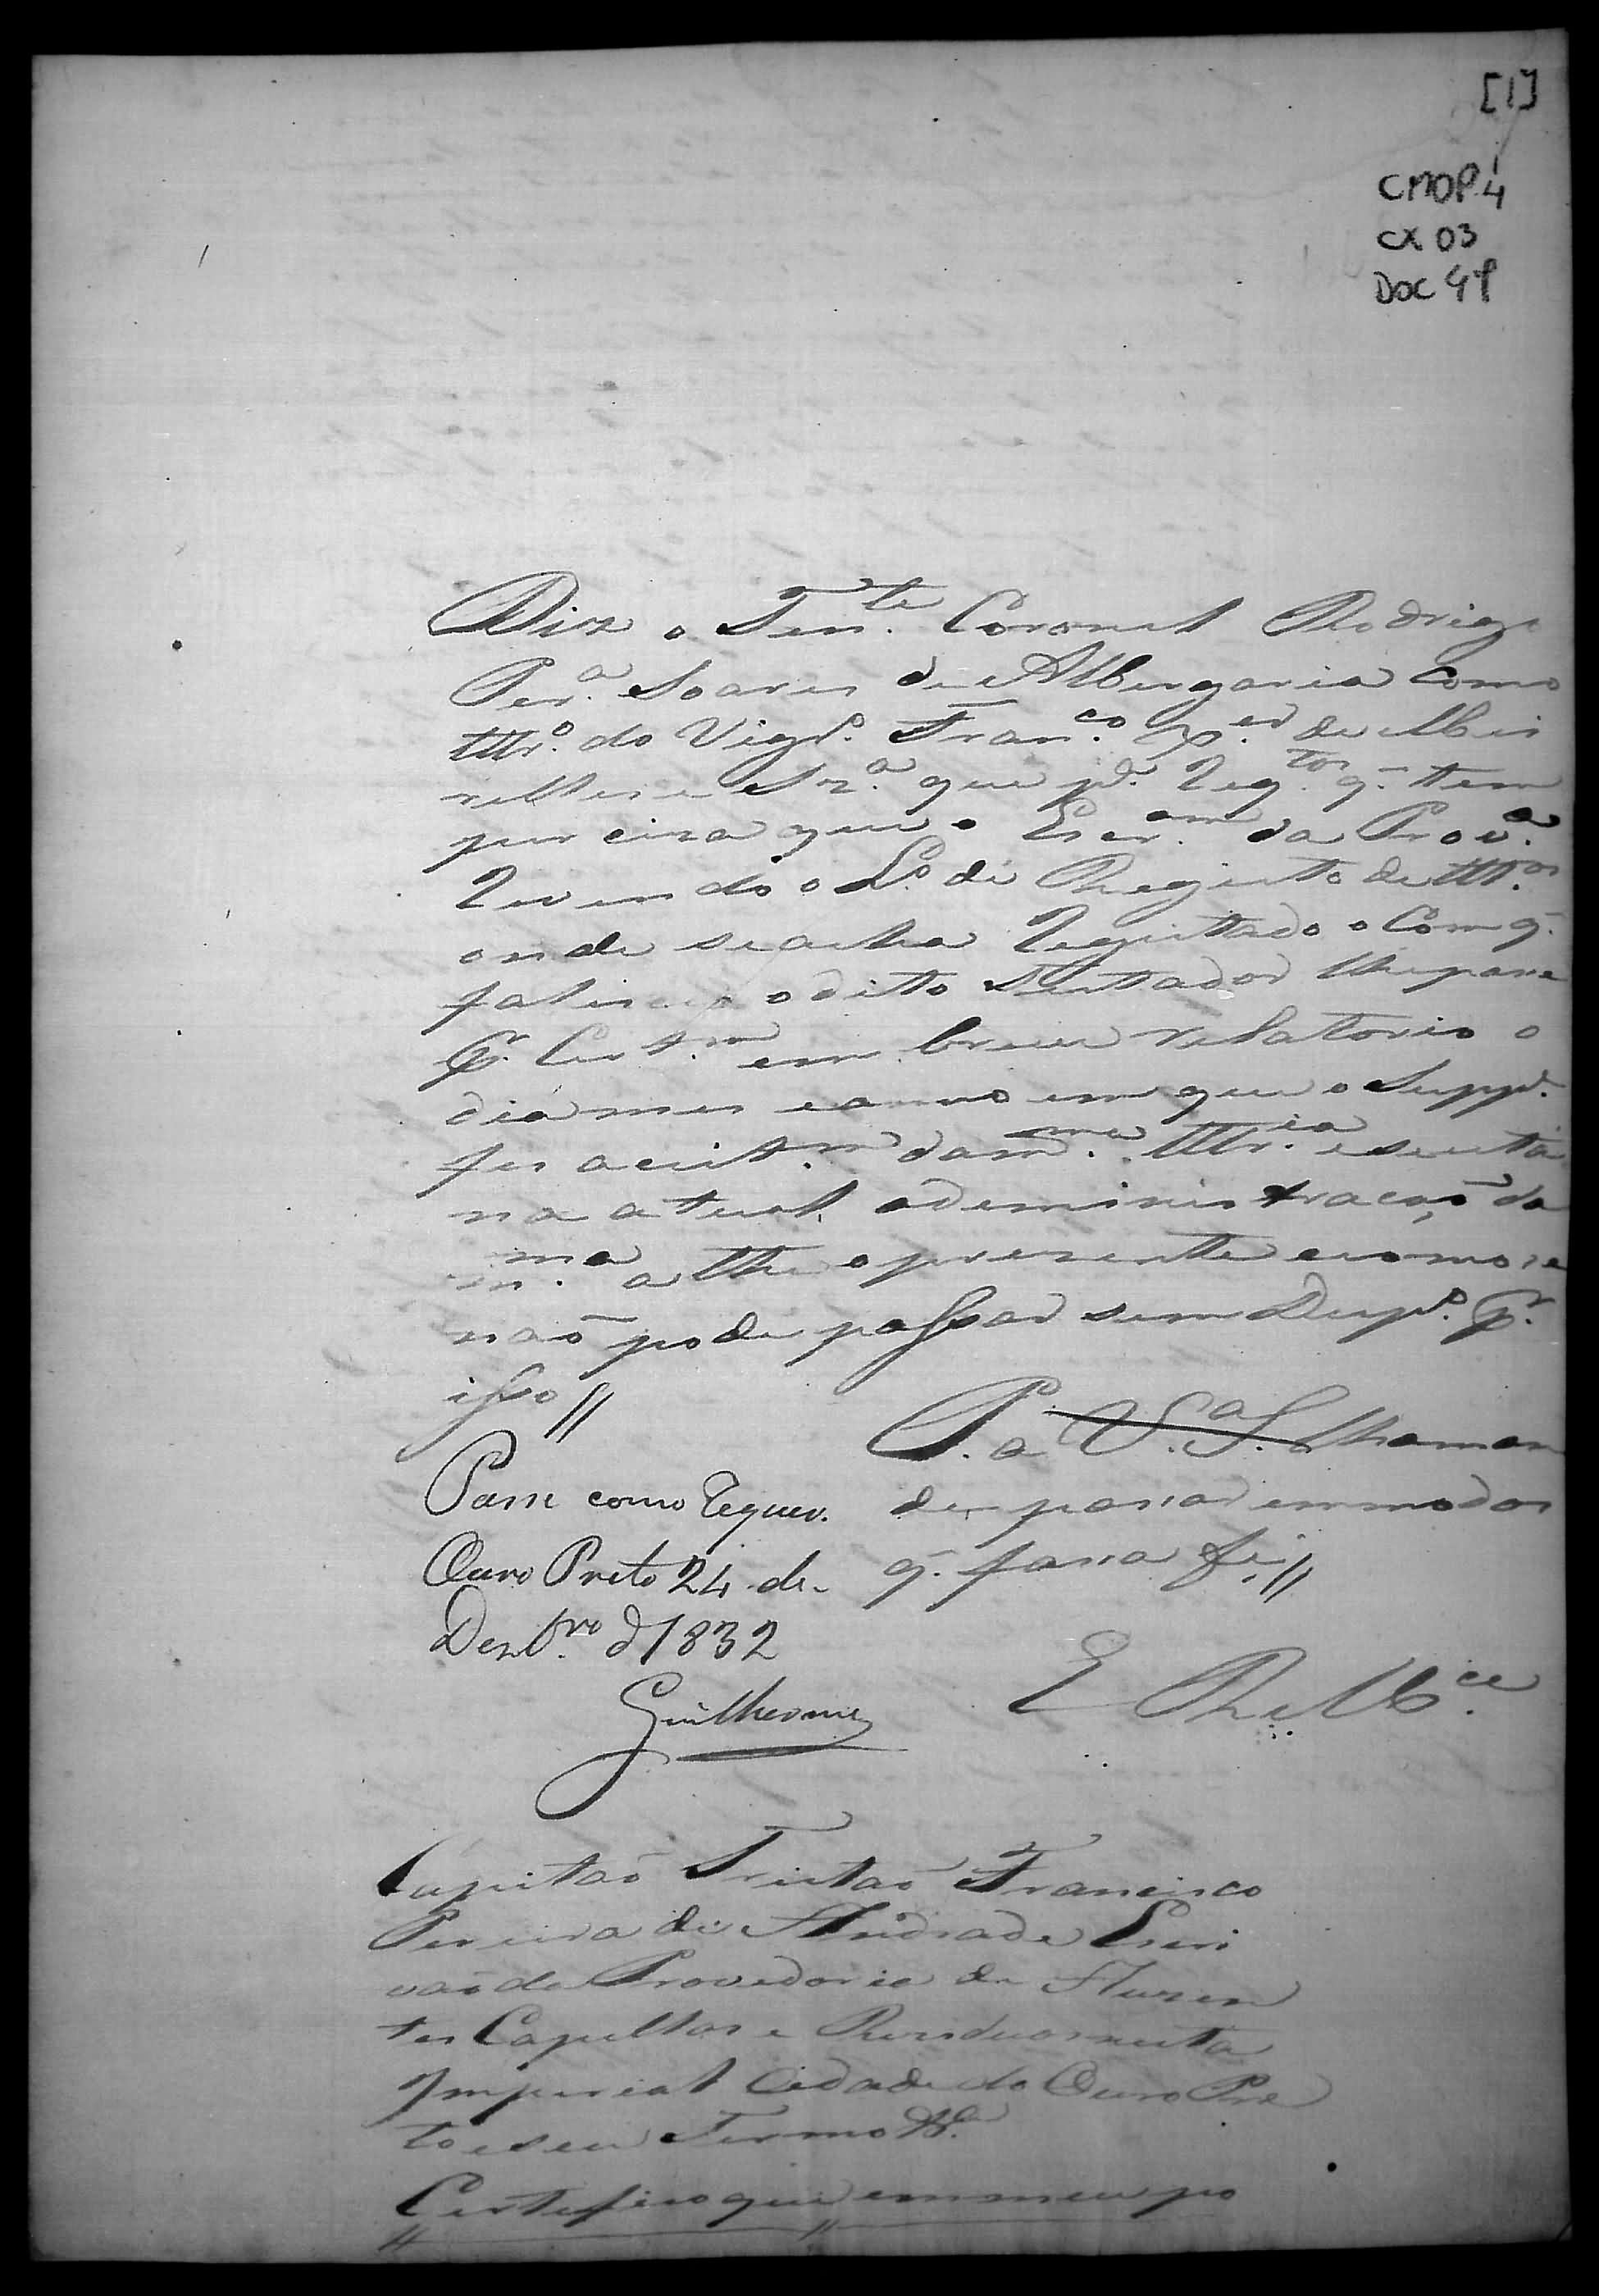 [1]
CMOP.4
CX 03
Doc 49
Diz o Ten.te Coronel Rodrigo
Per.a Soares de Albergaria como
Ttr.o do Vigr.o Fran.co X.er de Mei
relles e Sz.a que p.a Req.tos q. tem
perciza que o Escr.am da Prov.a
revendo o L.o de Registo de Tt.os
onde seacha Registado o Com q.
faleceo o dito Testador lhe passe
p.r Cert.m em breve relatorio o
dia mes e anno em que o Supp.e
fes aceit.m dam.ma Ttr.ia e seestá
na atual administração da
m.ma athe o prezente e como se
não pode passar sem Desp.o p.r
isso //
P. a V. S.a lhaman
de passar em modo
q. fassa fé //
E R M.ce
Passe como requer.
Ouro Preto 24 de
Dezbr.o d 1832
Guilherme
Capitão Tristão Francisco
Pereira de Andrade Escri
vão da Provedoria de Auzen
tes Capellas e Reziduos nesta
Imperial Cidade do Ouro Pre
to e seu Termo &.a
Certefico que em meu po